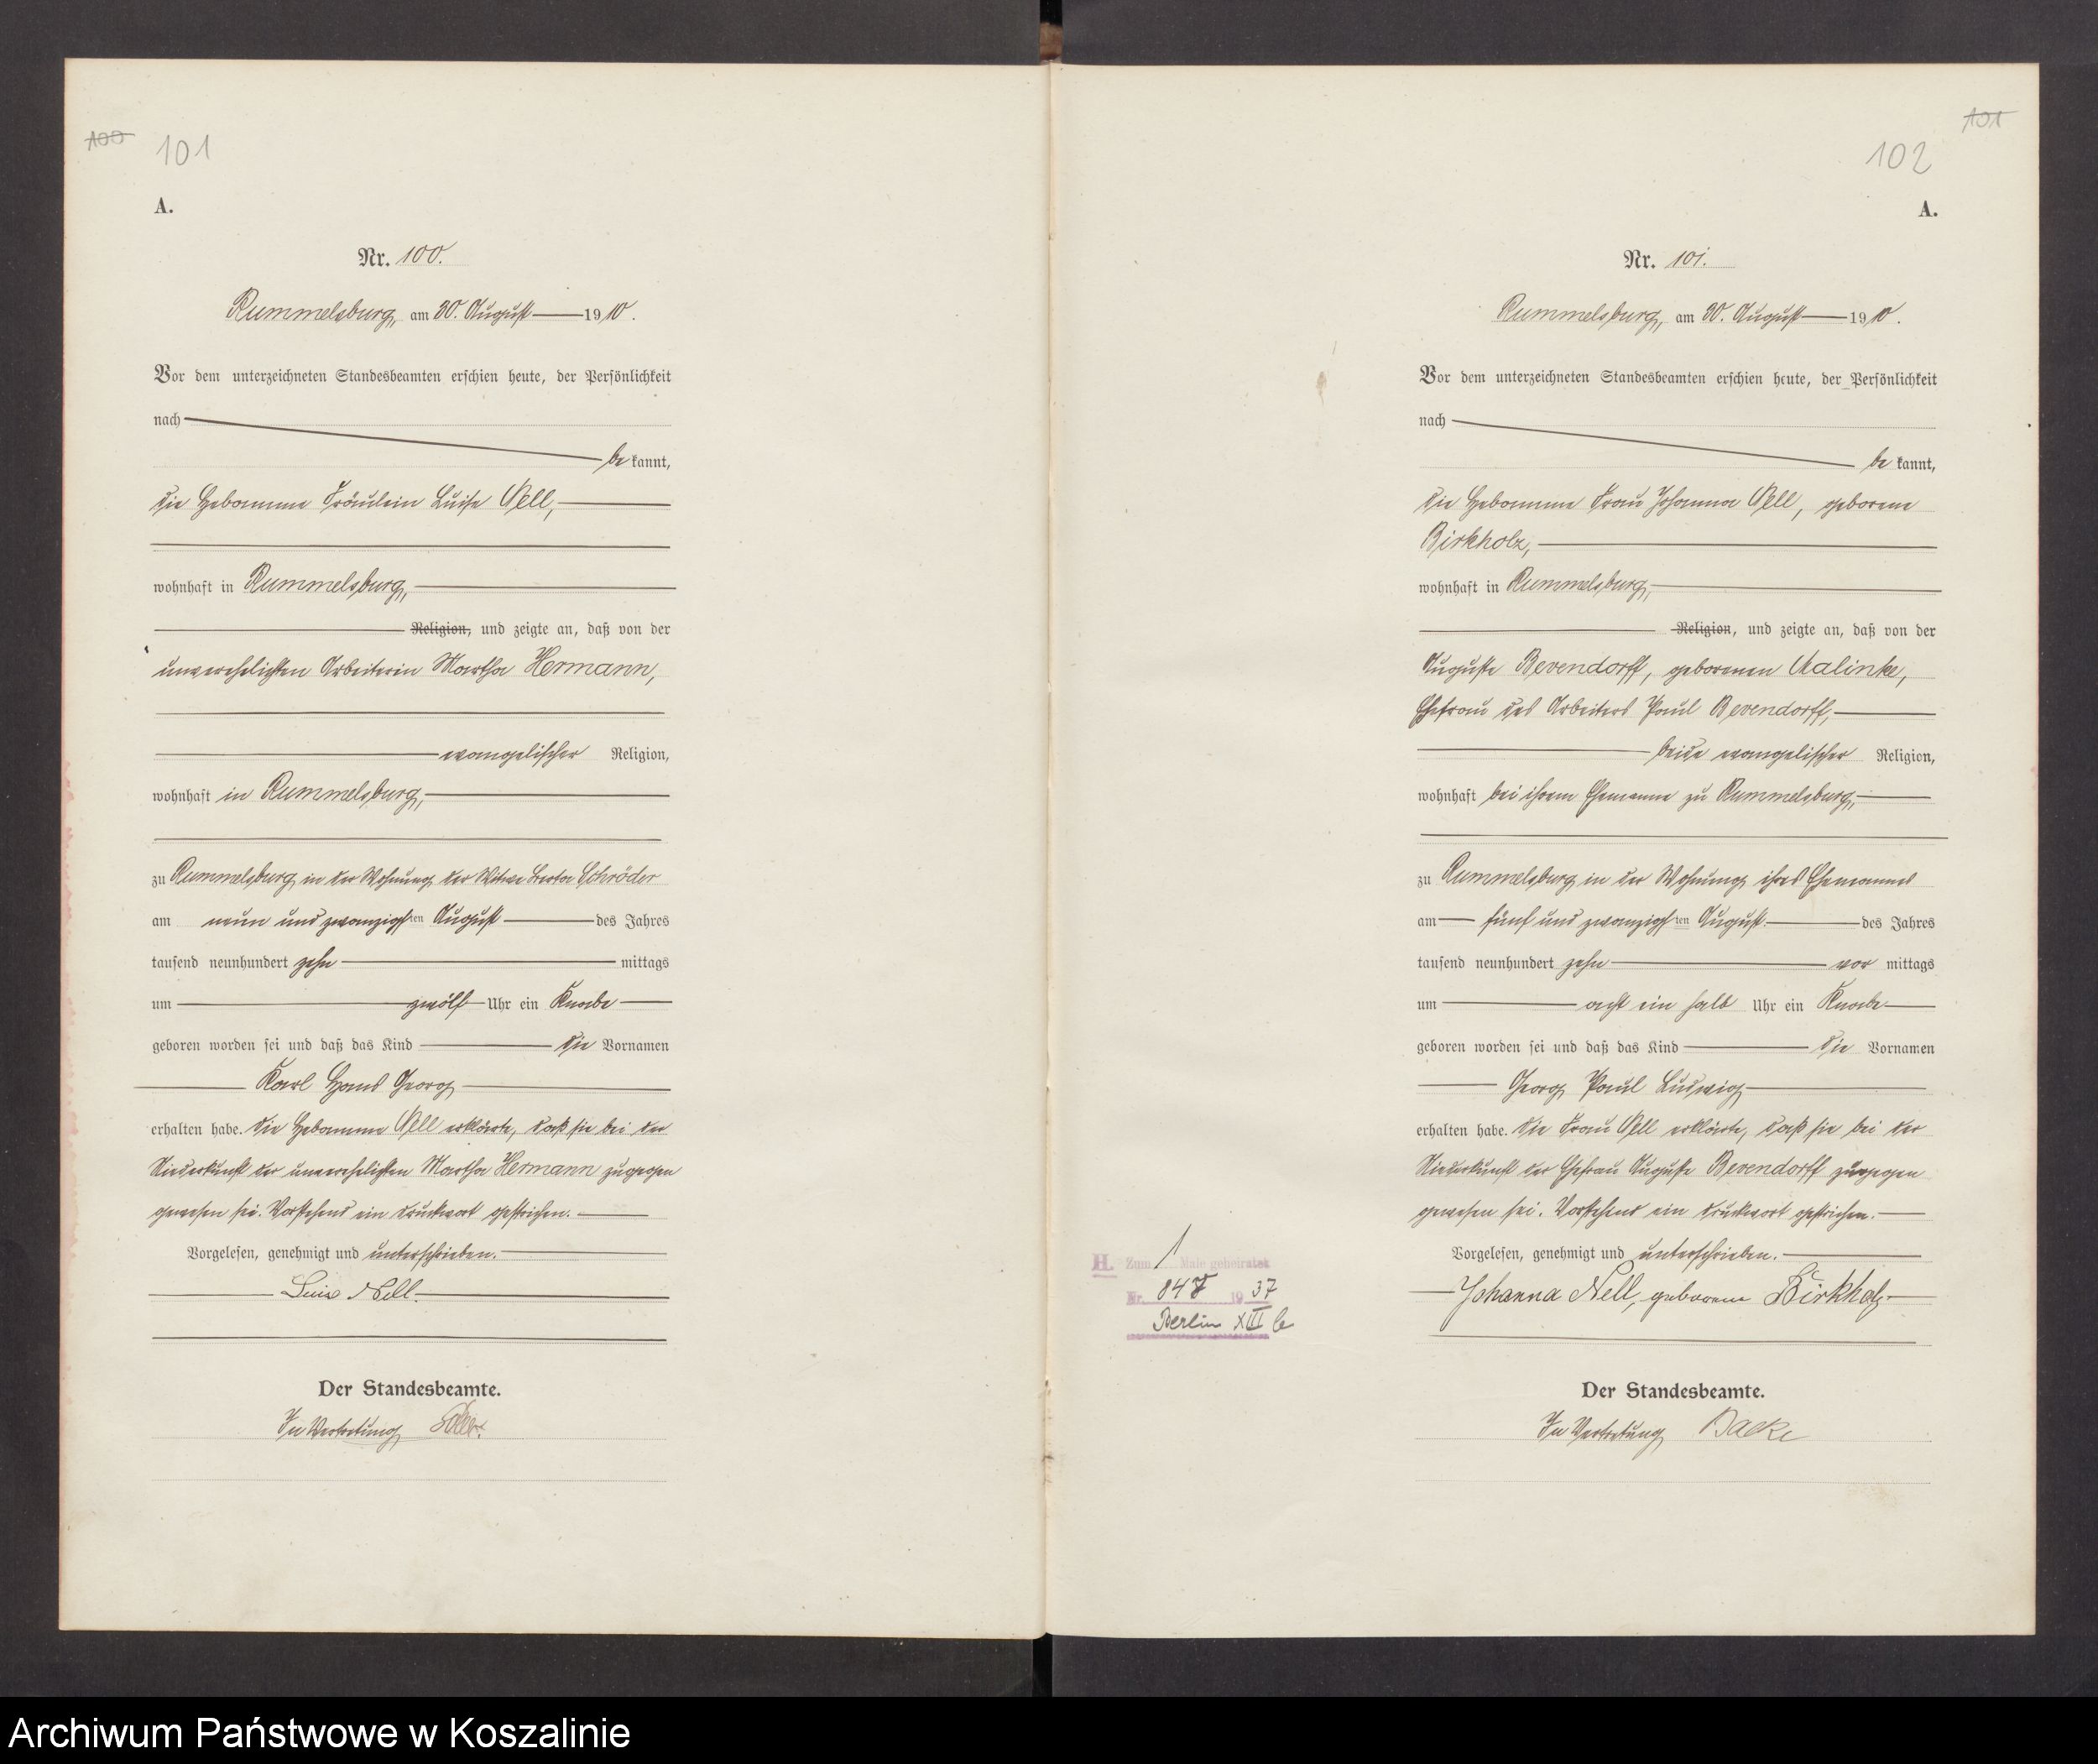 100
101
A.
Nr. 100.
Rummelsburg, am 30. August 1910.
Vor dem unterzeichneten Standesbeamten erschien heute, der Persönlichkeit
nach
bekannt,
die Hebamme Fräulein Luise Nell,
wohnhaft in Rummelsburg,
Religion, und zeigte an, daß von der
unverehelichten Arbeiterin Martha Hermann,
evangelischer Religion,
wohnhaft in Rummelsburg,
zu Rummelsburg in der Wohnung der Witwe Berta Schröder
am neun und zwanzigsten August des Jahres
tausend neunhundert zehn mittags
um zwölf Uhr ein Knabe
geboren worden sei und daß das Kind die Vornamen
Karl Hans Georg
erhalten habe. Die Hebamme Nell erklärte, daß sie bei der
Niederkunft der unverehelichten Martha Hermann zugegen
gewesen sei. Vorstehend ein Druckwort gestrichen.
Vorgelesen, genehmigt und unterschrieben.
Luise Nell.
Der Standesbeamte.
In Vertretung
101
102
A.
Nr. 101.
Rummelsburg, am 30. August 1910.
Vor dem unterzeichneten Standesbeamten erschien heute, der Persönlichkeit
nach
bekannt,
die Hebamme Frau Johanna Nell, geborene
Birkholz,
wohnhaft in Rummelsburg,
Religion, und zeigte an, daß von der
Auguste Bevendorff, geborenen Malinke,
Ehefrau des Arbeiters Paul Bevendorff,
beide evangelischer Religion,
wohnhaft bei ihrem Ehemanne zu Rummelsburg,
zu Rummelsburg in der Wohnung ihres Ehemannes
am fünf und zwanzigsten August des Jahres
tausend neunhundert zehn vor mittags
um acht ein halb Uhr ein Knabe
geboren worden sei und daß das Kind die Vornamen
Georg Paul Ludwig
erhalten habe. Die Frau Nell erklärte, daß sie bei der
Niederkunft der Ehefrau Auguste Bevendorff zugegen
gewesen sei. Vorstehend ein Druckwort gestrichen.
Vorgelesen, genehmigt und unterschrieben.
Johanna Nell, geborene Birkholz
Der Standesbeamte.
In Vertretung Backe
H. Zum 1 Male geheiratet
Nr. 847 1937
Berlin XIII b
Archiwum Państwowe w Koszalinie